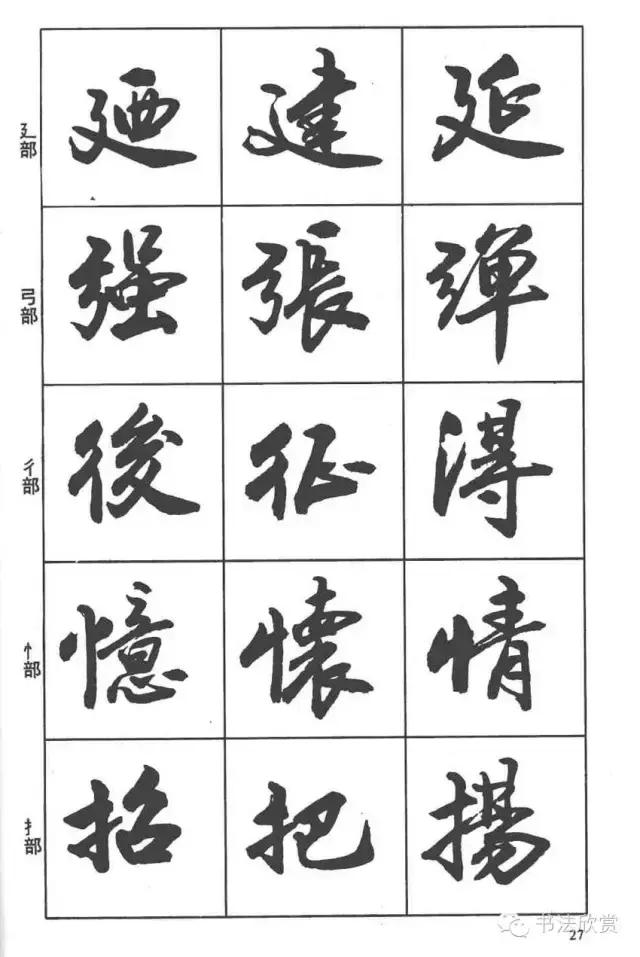 廴部 廼 建 延
弓部 强 張 弾
彳部 後 征 得
忄部 憶 懷 情
扌部 招 把 揚
书法欣赏
27